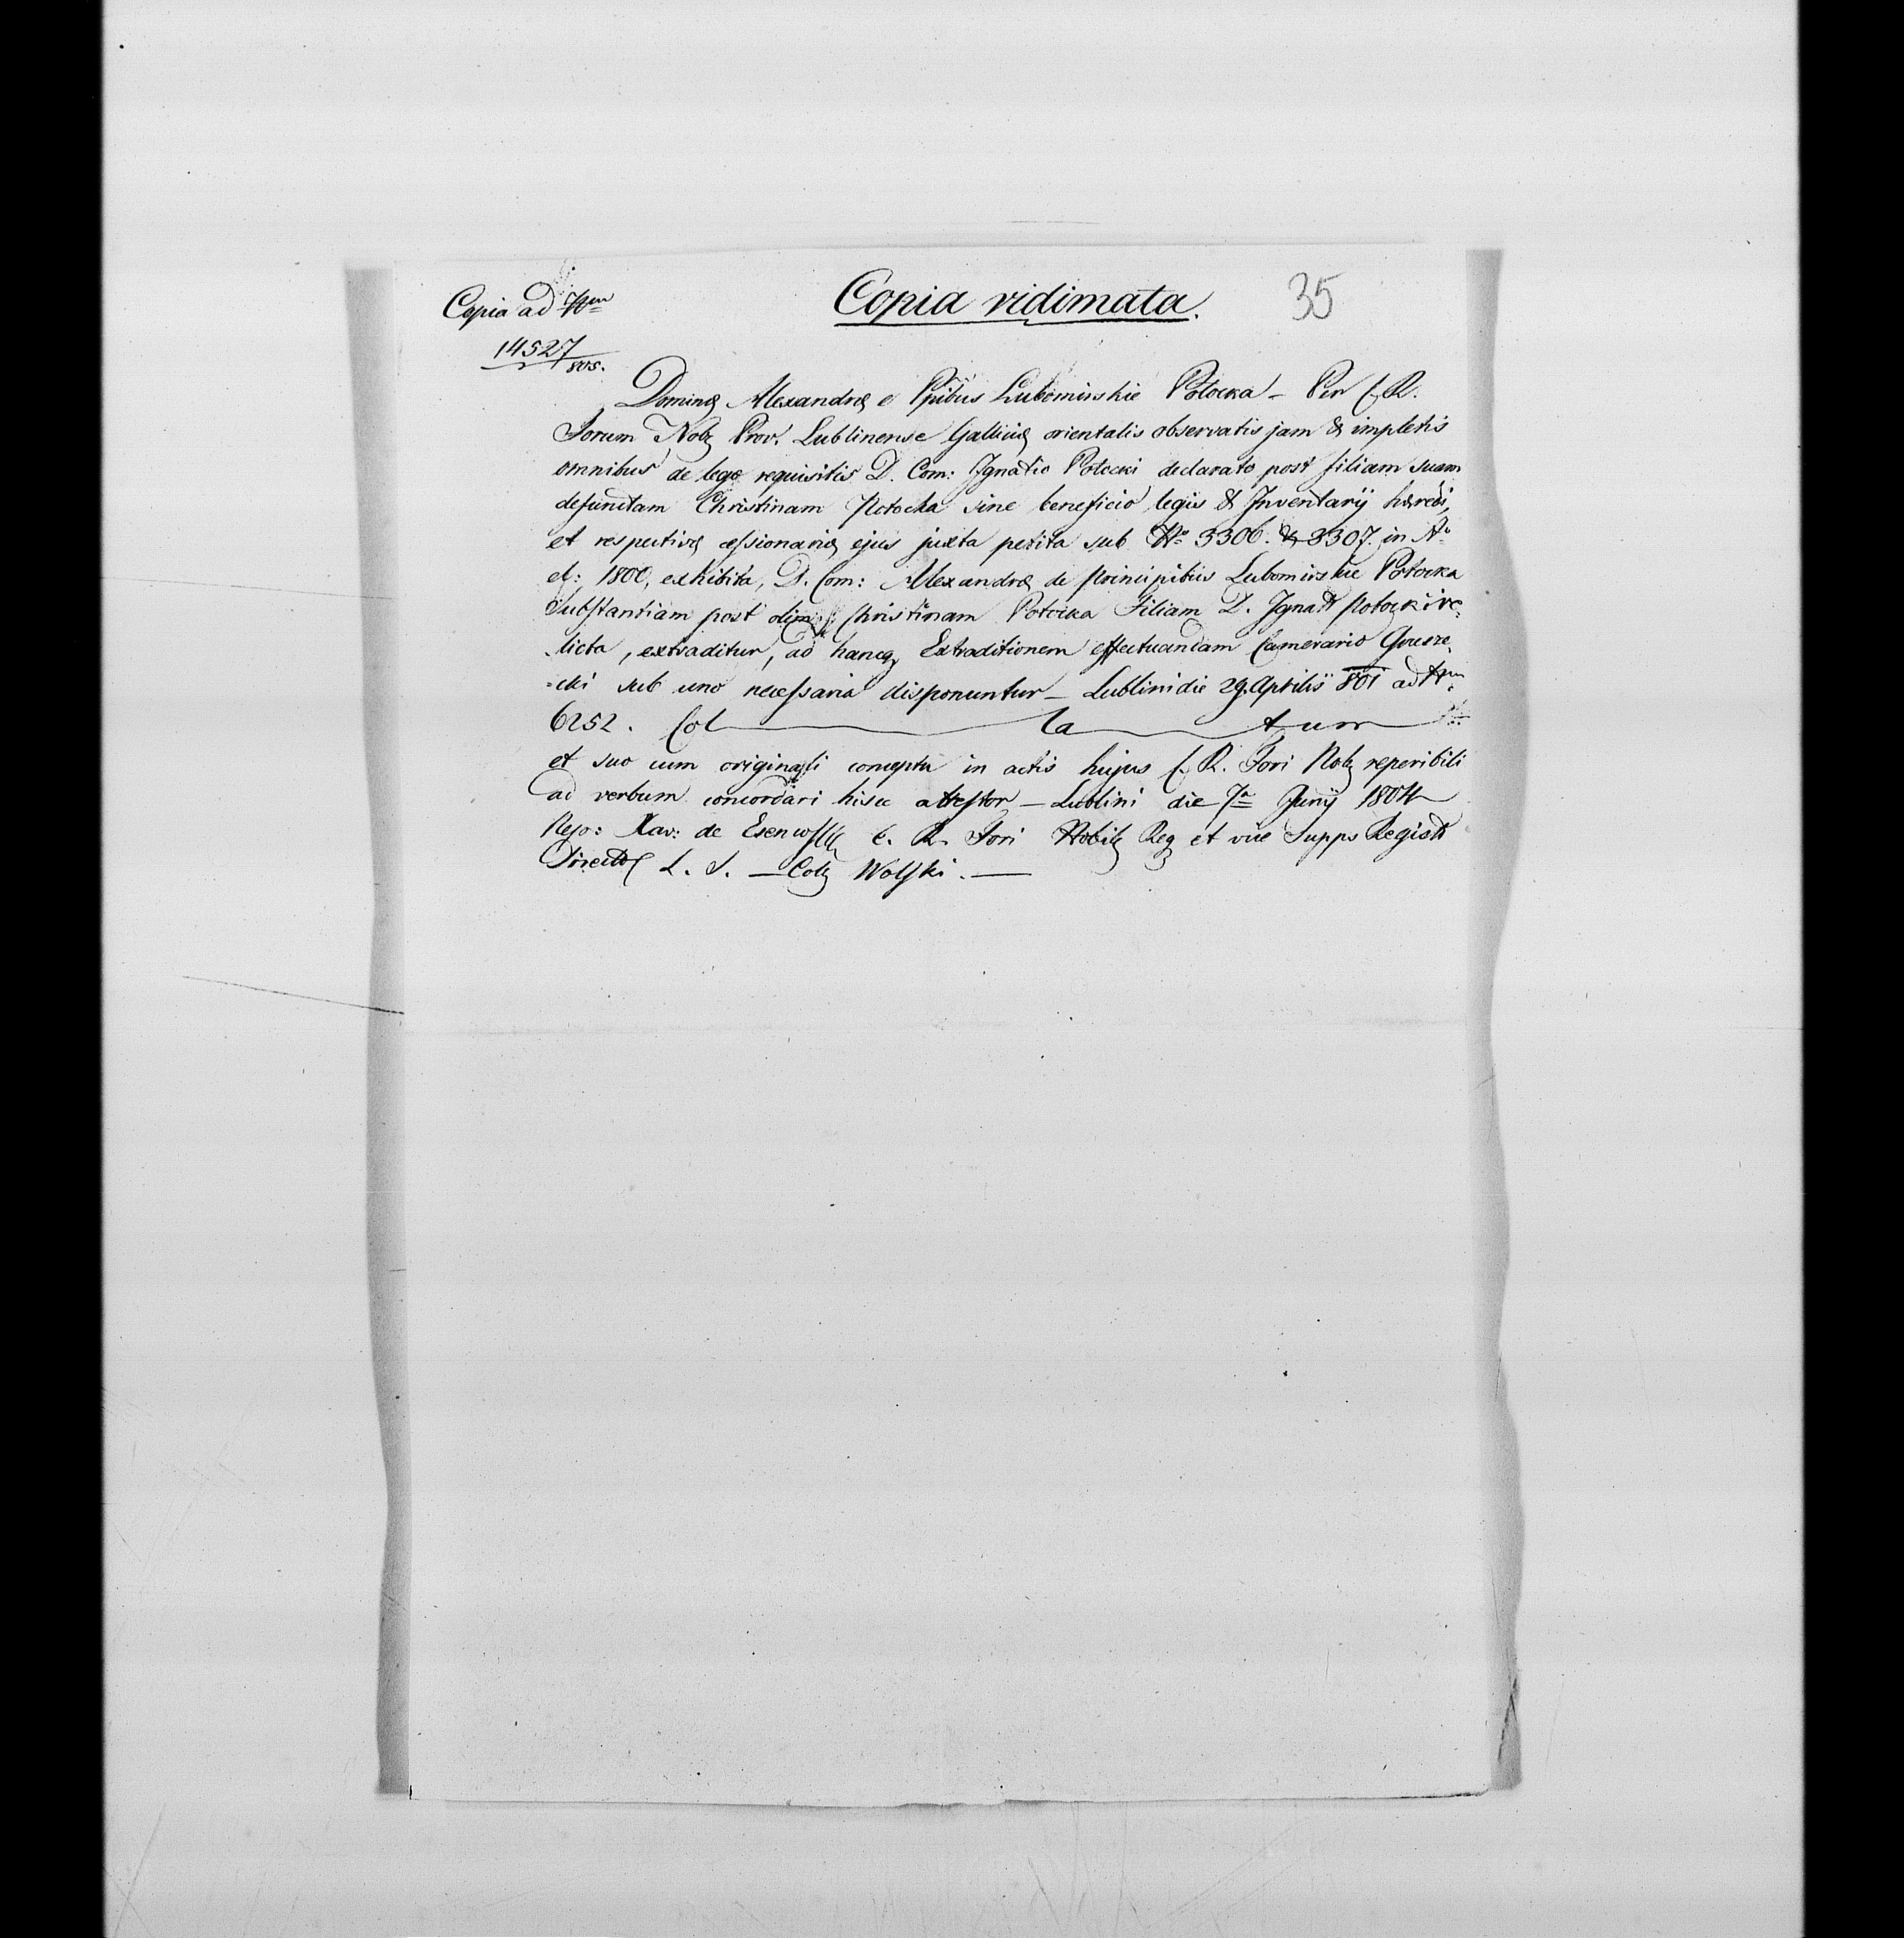 Copia ad Nrum
14527/805.
Copia vidimata.
35
Dominæ Alexandræ e Ppibus Lubomirskie Potocka – Per C. R.
Forum Nob. Prov. Lublinense Galliciæ orientalis observatis jam & impletis
omnibus de lege requisitis D. Com: Ignatio Potocki declarato post filiam suam
defunctam Christinam Potocka sine beneficio legis & Inventarij hæredi,
et respectivæ cessionariæ ejus juxta petita sub No 3306. & 3307. in Ao
et: 1800, exhibita, D. Com: Alexandræ de Principibus Lubomirskie Potocka
Substantiam post olim Christinam Potocka Filiam D. Ignatii Potocki re-
-licta, extraditur, ad hancq Extraditionem effectuandam Camerario
-cki sub uno necessaria disponuntur – Lublini die 29. Aprilis 801 ad Nrum
6252. Col la tum
et suo cum originali conceptu in actis hujus C. R. Fori Nob. reperibili
ad verbum concordari hisce attestor – Lublini die 7a Junij 1804
Xav: de C. R. Fori Nobil. Reg et vice Supps Registr
Direct L. S. – Coll Wolski. –